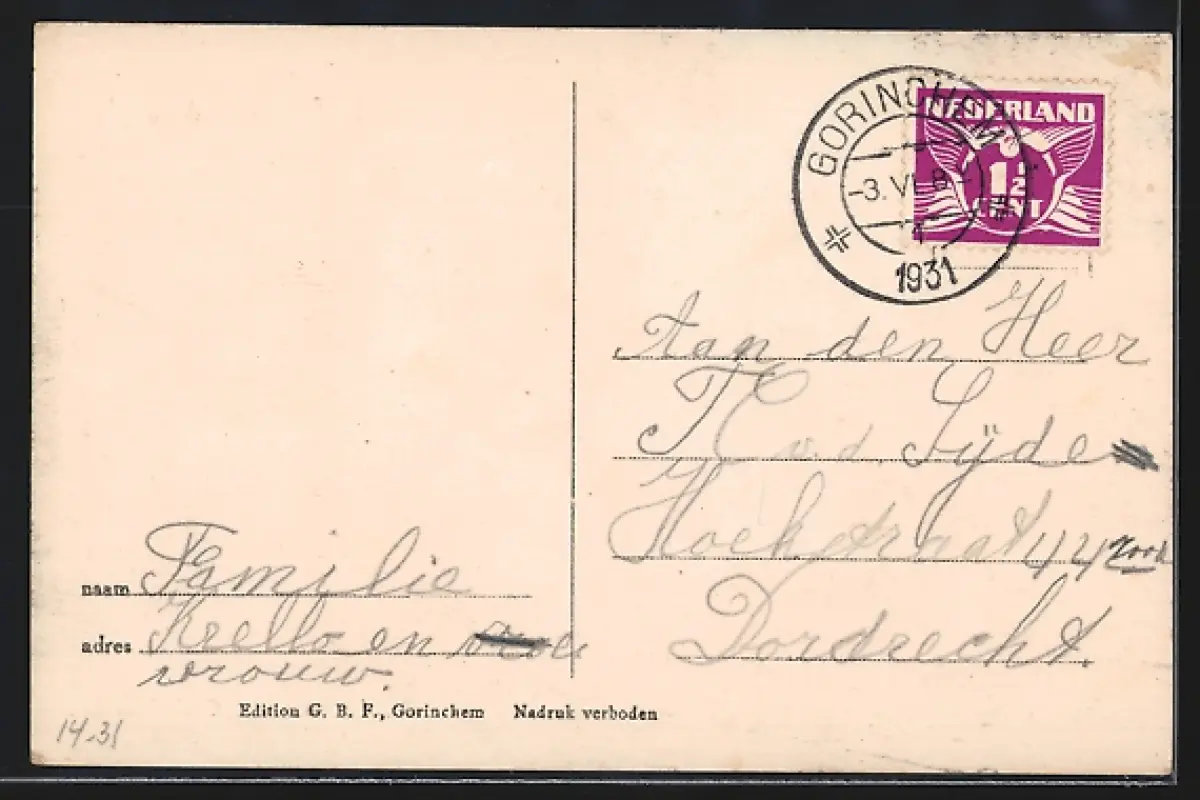 GORINCHEM
-3.VI.8-
1931
NEDERLAND
1½
CENT
Aan den Heer
T C v.d. Sÿde
Hoekstraat 44 rood
Dordrecht.
naam Familie
adres Krello en
vrouw.
Edition G. B. F., Gorinchem Nadruk verboden
14-31